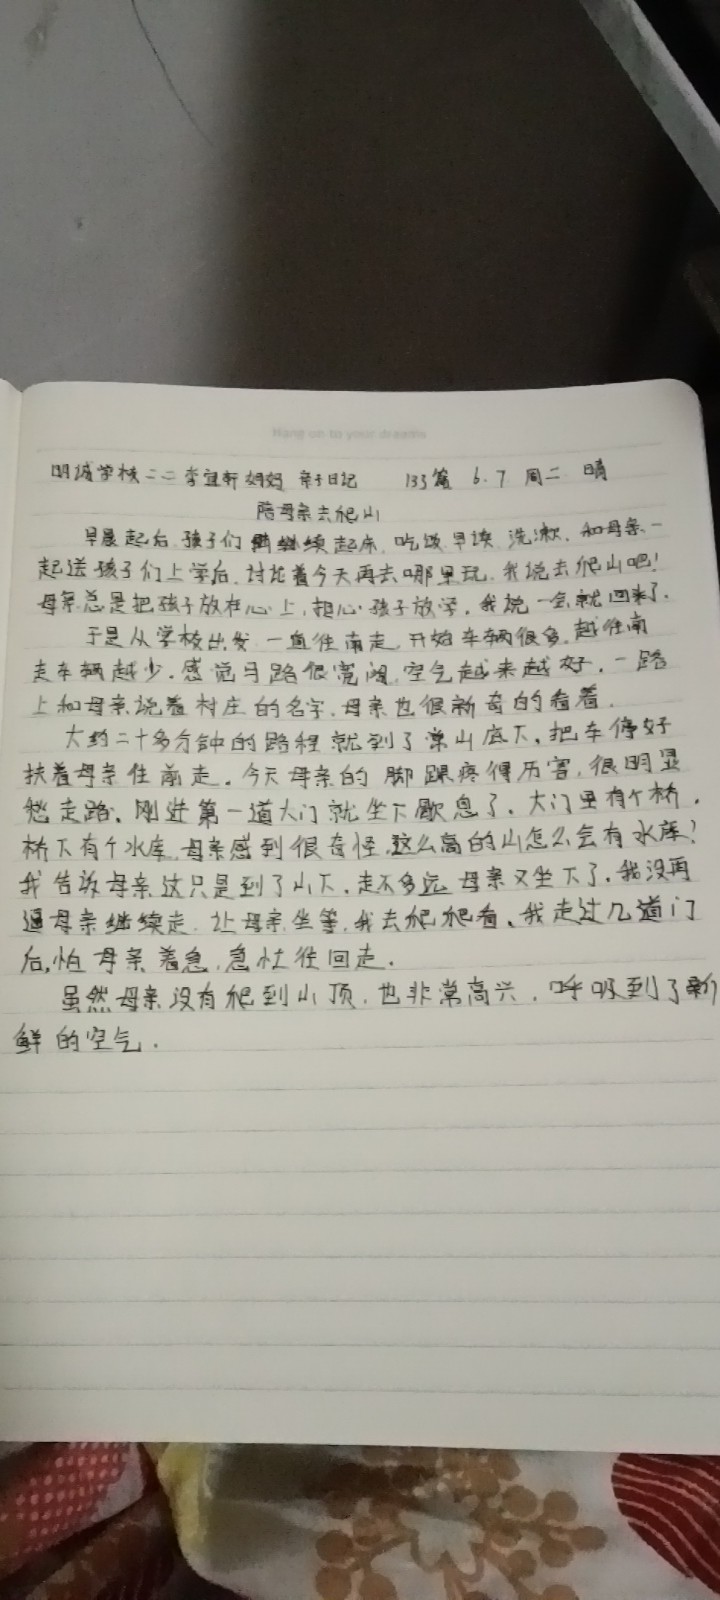 Hang on to your dreams
明诚学校二二李宜轩妈妈 亲子日记 133篇 6.7 周二 晴
陪母亲去爬山
早晨起后,孩子们继续起床,吃饭,早读,洗漱,和母亲一
起送孩子们上学后,讨论着今天再去哪里玩,我说去爬山吧!
母亲总是把孩子放在心上,担心孩子放学,我说一会就回来了.
于是从学校出发,一直往南走,开始车辆很多,越往南
走车辆越少.感觉马路很宽阔,空气越来越好.一路
上和母亲说着村庄的名字,母亲也很新奇的看着.
大约二十多分钟的路程就到了山底下、把车停好
扶着母亲往前走.今天母亲的脚踝疼得历害,很明显
愁走路、刚进第一道大门就坐下歇息了、大门里有个桥.
桥下有个水库,母亲感到很奇怪,这么高的山怎么会有水库?
我告诉母亲这只是到了山下、走不多远,母亲又坐下了,我没再
逼母亲继续走,让母亲坐等,我去爬爬看、我走过几道门
后,怕母亲着急,急忙往回走.
虽然母亲没有爬到山顶,也非常高兴,呼吸到了新
鲜的空气.